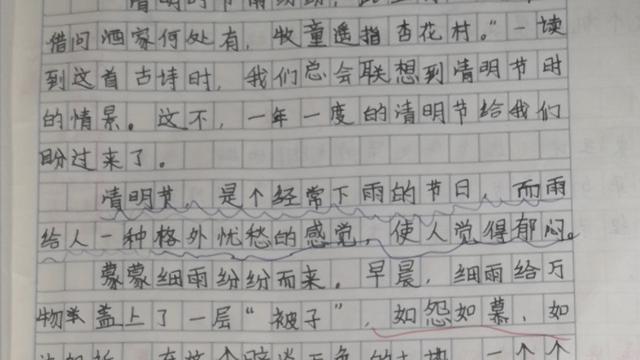 清明时节雨纷纷，
借问酒家何处有，牧童遥指杏花村。"一读
到这首古诗时，我们总会联想到清明节时
的情景。这不，一年一度的清明节给我们
盼过来了。
清明节，是个经常下雨的节日，而雨
给人一种格外忧愁的感觉，使人觉得郁闷。
蒙蒙细雨纷纷而来。早晨，细雨给万
物盖上了一层"被子"，如怨如慕，如